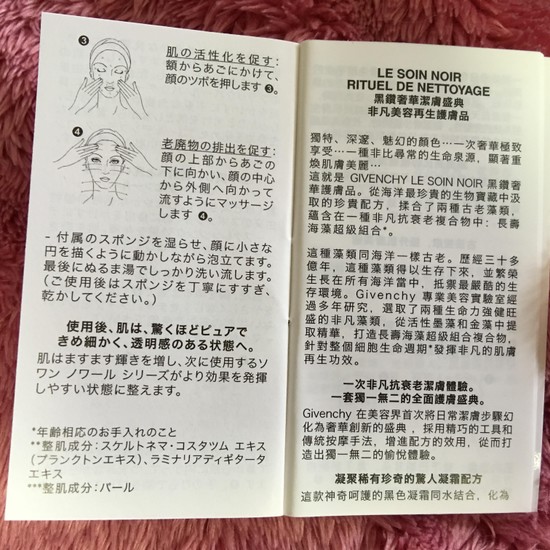 ③
肌の活性化を促す:
額からあごにかけて、
顔のツボを押します③。
④
老廃物の排出を促す:
顔の上部からあごの
下に向かい、顔の中心
から外側へ向かって
流すようにマッサージ
します④。
- 付属のスポンジを湿らせ、顔に小さな
円を描くように動かしながら泡立てます。
最後にぬるま湯でしっかり洗い流します。
(ご使用後はスポンジを丁寧にすすぎ、
乾かしてください。)
使用後、肌は、驚くほどピュアで
きめ細かく、透明感のある状態へ。
肌はますます輝きを増し、次に使用するソ
ワン ノワール シリーズがより効果を発揮
しやすい状態に整えます。
*年齢相応のお手入れのこと
**整肌成分:スケルトネマ・コスタツム エキス
(プランクトンエキス)、ラミナリアディギタータ
エキス
***整肌成分:パール
LE SOIN NOIR
RITUEL DE NETTOYAGE
黑鑽奢華潔膚盛典
非凡美容再生護膚品
獨特、深邃、魅幻的顏色…一次奢華極致
享受…一種非比尋常的生命泉源,顯著重
煥肌膚美麗…
這就是 GIVENCHY LE SOIN NOIR 黑鑽奢
華護膚品。從海洋最珍貴的生物寶藏中汲
取的珍貴配方,揉合了兩種古老藻類,
蘊含在一種非凡抗衰老複合物中:長壽
海藻超級組合*。
這種藻類同海洋一樣古老。歷經三十多
億年,這種藻類得以生存下來,並繁榮
生長在所有海洋當中,抵禦最嚴酷的生
存環境。Givenchy 專業美容實驗室經
過多年研究,選取了兩種生命力強健旺
盛的非凡藻類,從活性墨藻和金藻中提
取精華,打造長壽海藻超級組合複合物,
針對整個細胞生命週期*發揮非凡的肌膚
再生功效。
一次非凡抗衰老潔膚體驗。
一套獨一無二的全面護膚盛典。
Givenchy 在美容界首次將日常潔膚步驟幻
化為奢華創新的盛典,採用精巧的工具和
傳統按摩手法,增進配方的效用,從而打
造出獨一無二的愉悅體驗。
凝聚稀有珍奇的驚人凝霜配方
這款神奇呵護的黑色凝霜同水結合,化為